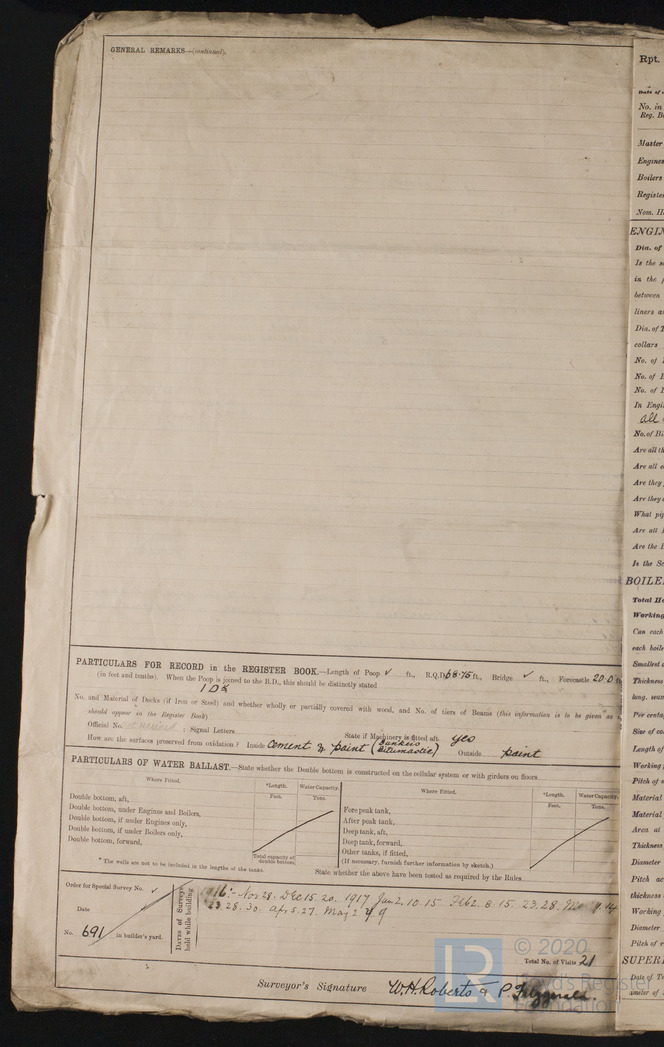 GENERAL REMARKS—(continued).
PARTICULARS FOR RECORD in the REGISTER BOOK.—Length of Poop ✓ ft., R.Q.D. 68.75 ft., Bridge ✓ ft., Forecastle 20.0 ft.
(in feet and tenths). When the Poop is joined to the B.D., this should be distinctly stated
1 Dk
No. and Material of Decks (if Iron or Steel) and whether wholly or partially covered with wood, and No. of tiers of Beams (this information is to be given as it
should appear in the Register Book)
Official No. ; Signal Letters State if Machinery is fitted aft. yes
How are the surfaces preserved from oxidation? Inside Cement & paint (Bitumastic) Outside paint
PARTICULARS OF WATER BALLAST.—State whether the Double bottom is constructed on the cellular system or with girders on floors
Where Fitted. *Length. Water Capacity. Where Fitted. *Length. Water Capacity.
Feet. Tons. Feet. Tons.
Double bottom, aft, Fore peak tank,
Double bottom, under Engines and Boilers, After peak tank,
Double bottom, if under Engines only, Deep tank, aft,
Double bottom, if under Boilers only, Deep tank, forward,
Double bottom, forward, Other tanks, if fitted,
Total capacity of double bottom. (If necessary, furnish further information by sketch.)
* The wells are not to be included in the lengths of the tanks. State whether the above have been tested as required by the Rules
Order for Special Survey No. ✓
Date
No. 691 in builder's yard.
Dates of Surveys held while building
1916:- Nov 28. Dec 15. 20. 1917 Jan 2. 10. 15. Feb 2. 8. 15. 23. 28. 9. 14
23. 28. 30. Ap. 5. 27. May 2. 4. 9
Total No. of Visits 21
Surveyor's Signature W.H. Roberts & P. Fitzgerald.
© 2020
Lloyd's Register
Foundation
LR
Rpt.
Date of
No. in
Reg. B
Master
Engines
Boilers
Registe
Nom. H
ENGIN
Dia. of
Is the s
in the
between
liners a
Dia. of T
collars
No. of
No. of
No. of
In Engi
all
No. of Bi
Are all th
Are all c
Are they
Are they
What pip
Are all
Are the
Is the Sc
BOILE
Total He
Working
Can each
each boile
Smallest
Thickness
long. seam
Per centa
Size of co
Length of
Working
Pitch of
Material
Material
Area at
Thickness
Diameter
Pitch
thickness
Working
Diameter
Pitch of
SUPER
Date of T